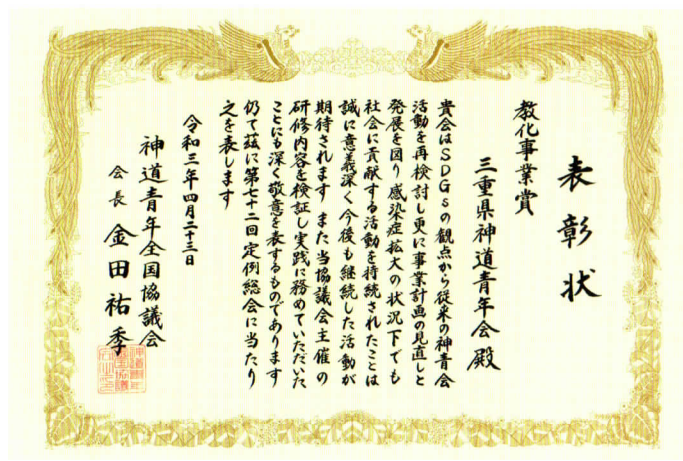 表彰状
教化事業賞
三重県神道青年会殿
貴会はSDGsの観点から従来の神青会
活動を再検討し更に事業計画の見直しと
発展を図り感染症拡大の状況下でも
社会に貢献する活動を持続されたことは
誠に意義深く今後も継続した活動が
期待されます また当協議会主催の
研修内容を検証し実践に務めていただいた
ことにも深く敬意を表するものであります
仍て茲に第七十二回定例総会に当たり
之を表します
令和三年四月二十三日
神道青年全国協議会
会長 金田祐季